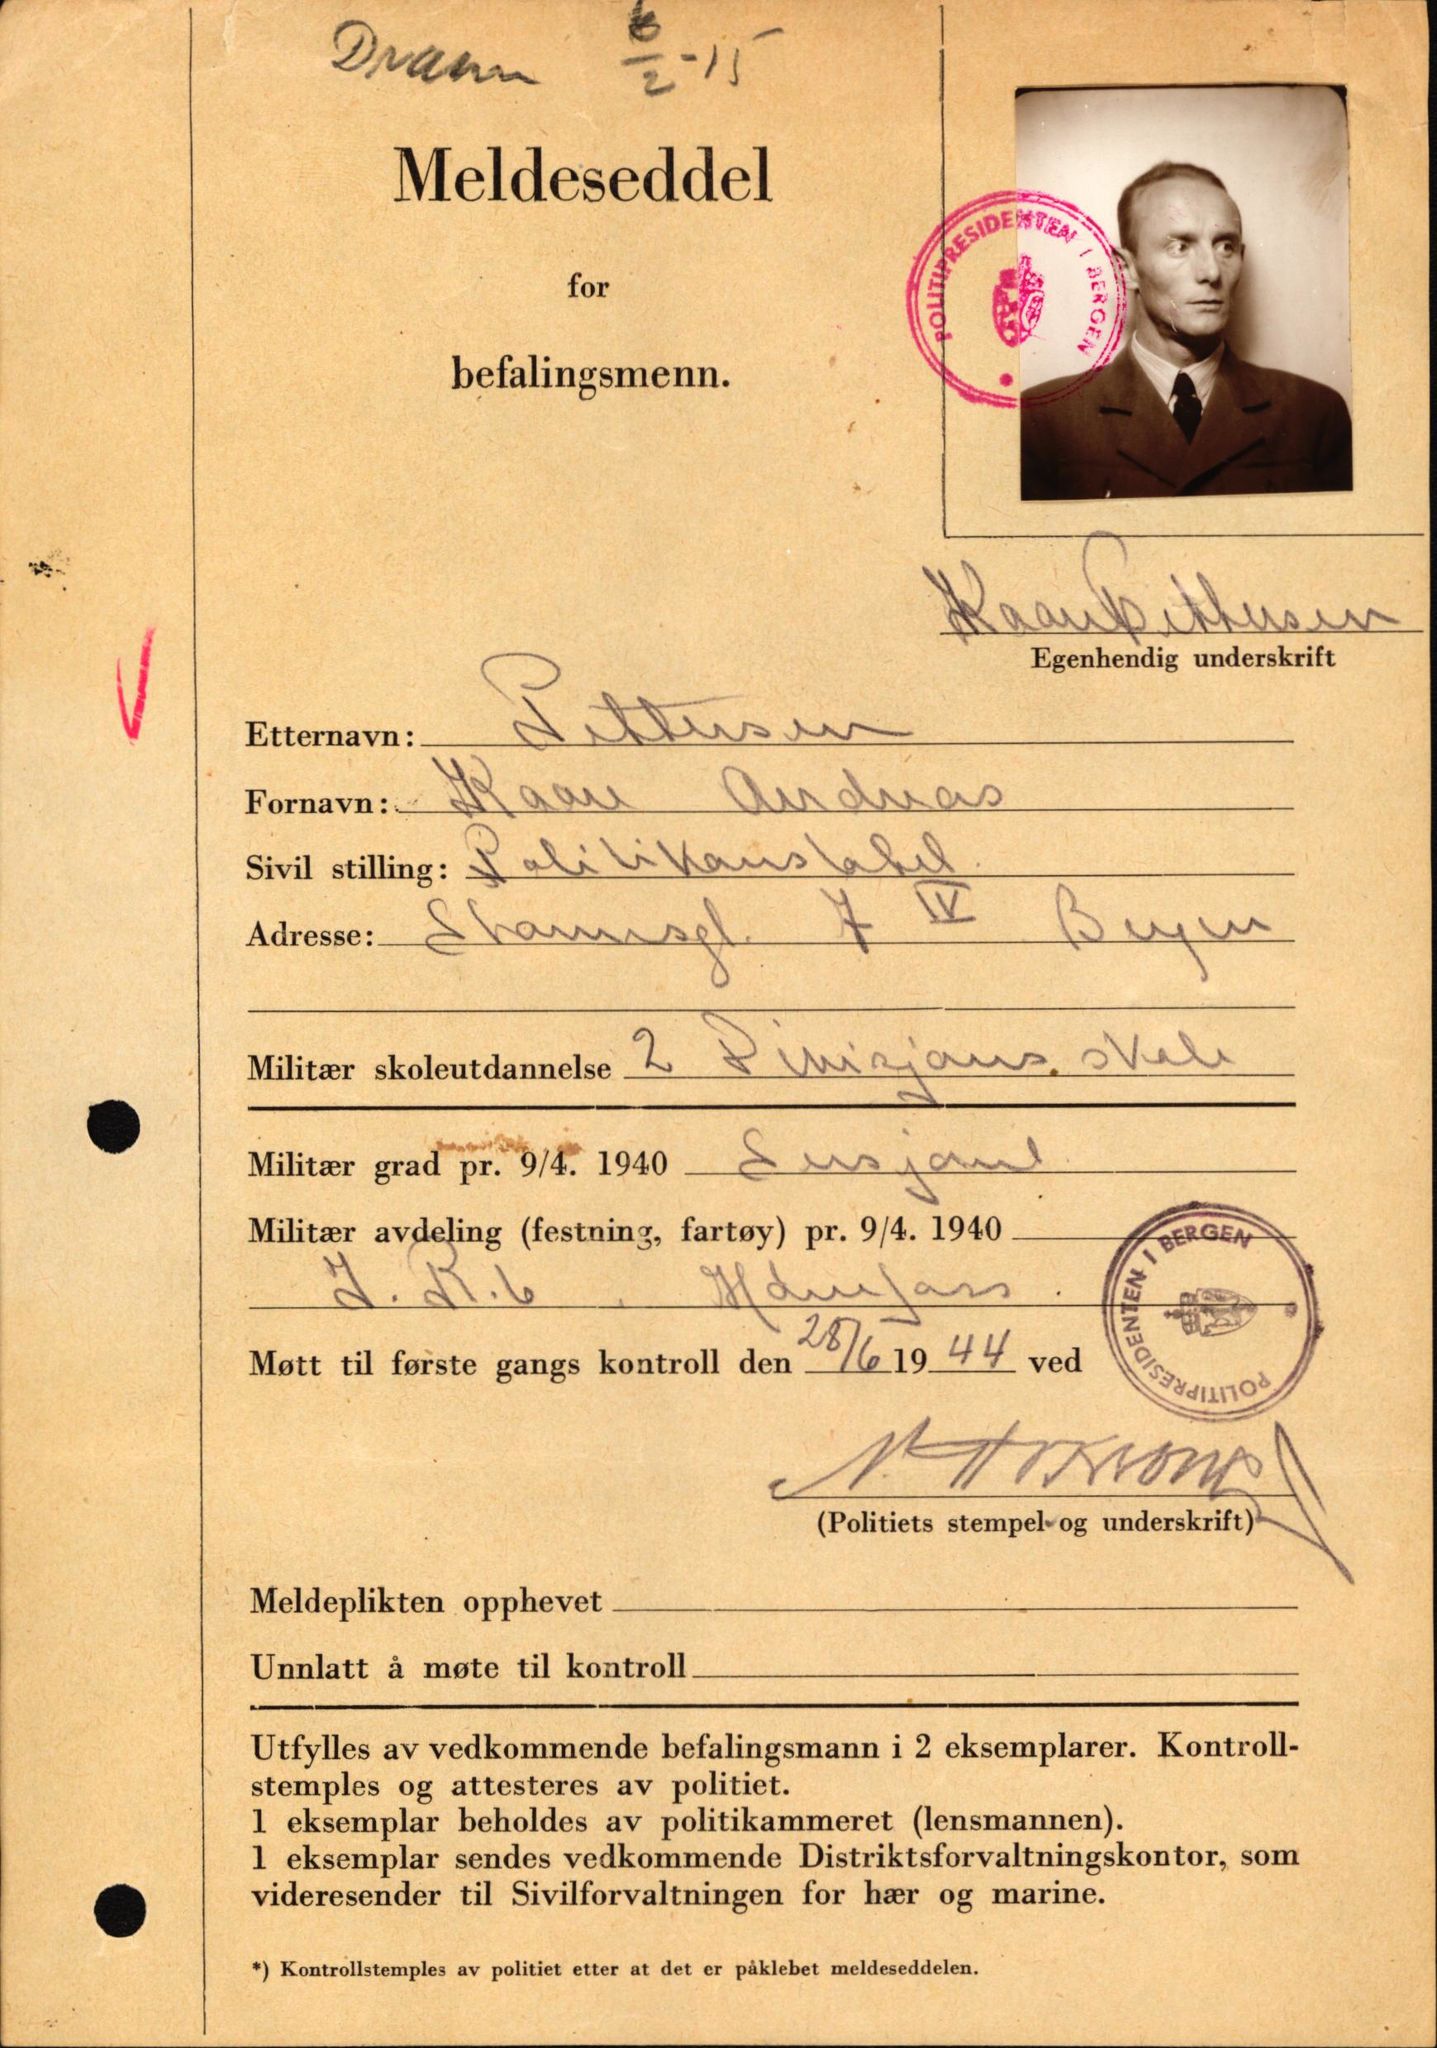 Dramn 6/2-15
Meldeseddel
for
befalingsmenn.
POLITIPRESIDENTEN I BERGEN
Kaare Pettersen
Egenhendig underskrift
Etternavn: Pettersen
Fornavn: Kaare Andreas
Sivil stilling: Politikonstabel
Adresse: 7 IV Bergen
Militær skoleutdannelse 2 Divisjons skole
Militær grad pr. 9/4. 1940 Sersjant
Militær avdeling (festning, fartøy) pr. 9/4. 1940
I. R. 6 Hønefoss.
POLITIPRESIDENTEN I BERGEN
Møtt til første gangs kontroll den 28/6 1944 ved
(Politiets stempel og underskrift)
Meldeplikten opphevet
Unnlatt å møte til kontroll
Utfylles av vedkommende befalingsmann i 2 eksemplarer. Kontroll-
stemples og attesteres av politiet.
1 eksemplar beholdes av politikammeret (lensmannen).
1 eksemplar sendes vedkommende Distriktsforvaltningskontor, som
videresender til Sivilforvaltningen for hær og marine.
*) Kontrollstemples av politiet etter at det er påklebet meldeseddelen.